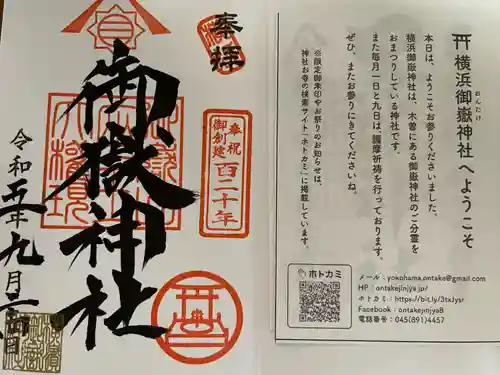 奉拝
御嶽神社
奉祝
御創建
百二十年
令和五年九月二十四日
横浜御嶽神社へようこそ
おんたけ
本日は、ようこそお参りくださいました。
横浜御嶽神社は、木曽にある御嶽神社のご分霊を
おまつりしている神社です。
また毎月一日と九日は、護摩祈祷を行っております。
ぜひ、またお参りにきてくださいね。
※限定御朱印やお祭りのお知らせは、
神社お寺の検索サイト「ホトカミ」に掲載しています。
ホトカミ
メール：yokohama.ontake@gmail.com
HP：ontakejinjya.jp/
ホトカミ：https://bit.ly/3txJysr
Facebook：ontakejinjya8
電話番号：045(891)4457